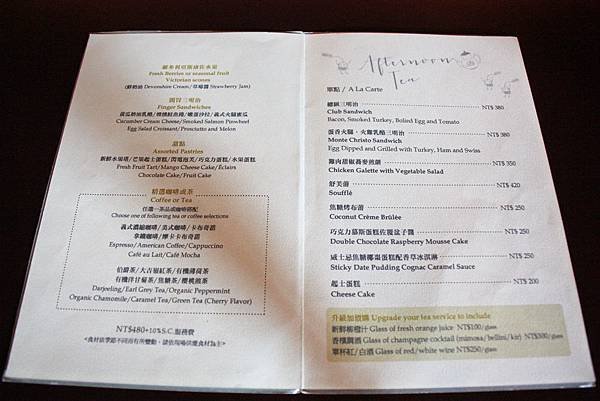 維多利亞斯康佐水果
Fresh Berries or seasonal fruit
Victorian scones
(鮮奶油 Devonshire Cream/草莓醬 Strawberry Jam)
開胃三明治
Finger Sandwiches
Cucumber Cream Cheese/Smoked Salmon Pinwheel
Egg Salad Croissant/Prosciutto and Melon
甜點
Assorted Pastries
新鮮水果塔/芒果起士蛋糕/閃電泡芙/巧克力蛋糕/水果蛋糕
Fresh Fruit Tart/Mango Cheese Cake/Éclairs
Chocolate Cake/Fruit Cake
精選咖啡或茶
Coffee or Tea
任選一茶品或咖啡搭配
Choose one of following tea or coffee selections
義式濃縮咖啡/美式咖啡/卡布奇諾
拿鐵咖啡/摩卡卡布奇諾
Espresso/American Coffee/Cappuccino
Café au Lait/Café Mocha
伯爵茶/大吉嶺紅茶/有機薄荷茶
有機洋甘菊茶/焦糖茶/櫻桃煎茶
Darjeeling/Earl Grey Tea/Organic Peppermint
Organic Chamomile/Caramel Tea/Green Tea (Cherry Flavor)
NT$480+10%S.C.服務費
Afternoon
Tea
單點 / A La Carte
總匯三明治 NT$ 380
Club Sandwich
Bacon, Smoked Turkey, Bolied Egg and Tomato
蛋香火腿、火雞乳酪三明治 NT$ 380
Monte Christo Sandwich
Egg Dipped and Grilled with Turkey, Ham and Swiss
雞肉甜椒蕎麥煎餅 NT$ 350
Chicken Galette with Vegetable Salad
舒芙蕾 NT$ 420
Soufflé
焦糖烤布蕾 NT$ 250
Coconut Crème Brûlée
巧克力慕斯蛋糕佐覆盆子醬 NT$ 250
Double Chocolate Raspberry Mousse Cake
威士忌焦糖椰棗蛋糕配香草冰淇淋 NT$ 250
Sticky Date Pudding Cognac Caramel Sauce
起士蛋糕 NT$ 200
Cheese Cake
升級加價購 Upgrade your tea service to include
新鮮柳橙汁 Glass of fresh orange juice NT$100/glass
香檳調酒 Glass of champagne cocktail (mimosa/bellini/kir) NT$300/glass
單杯紅/白酒 Glass of red/white wine NT$250/glass